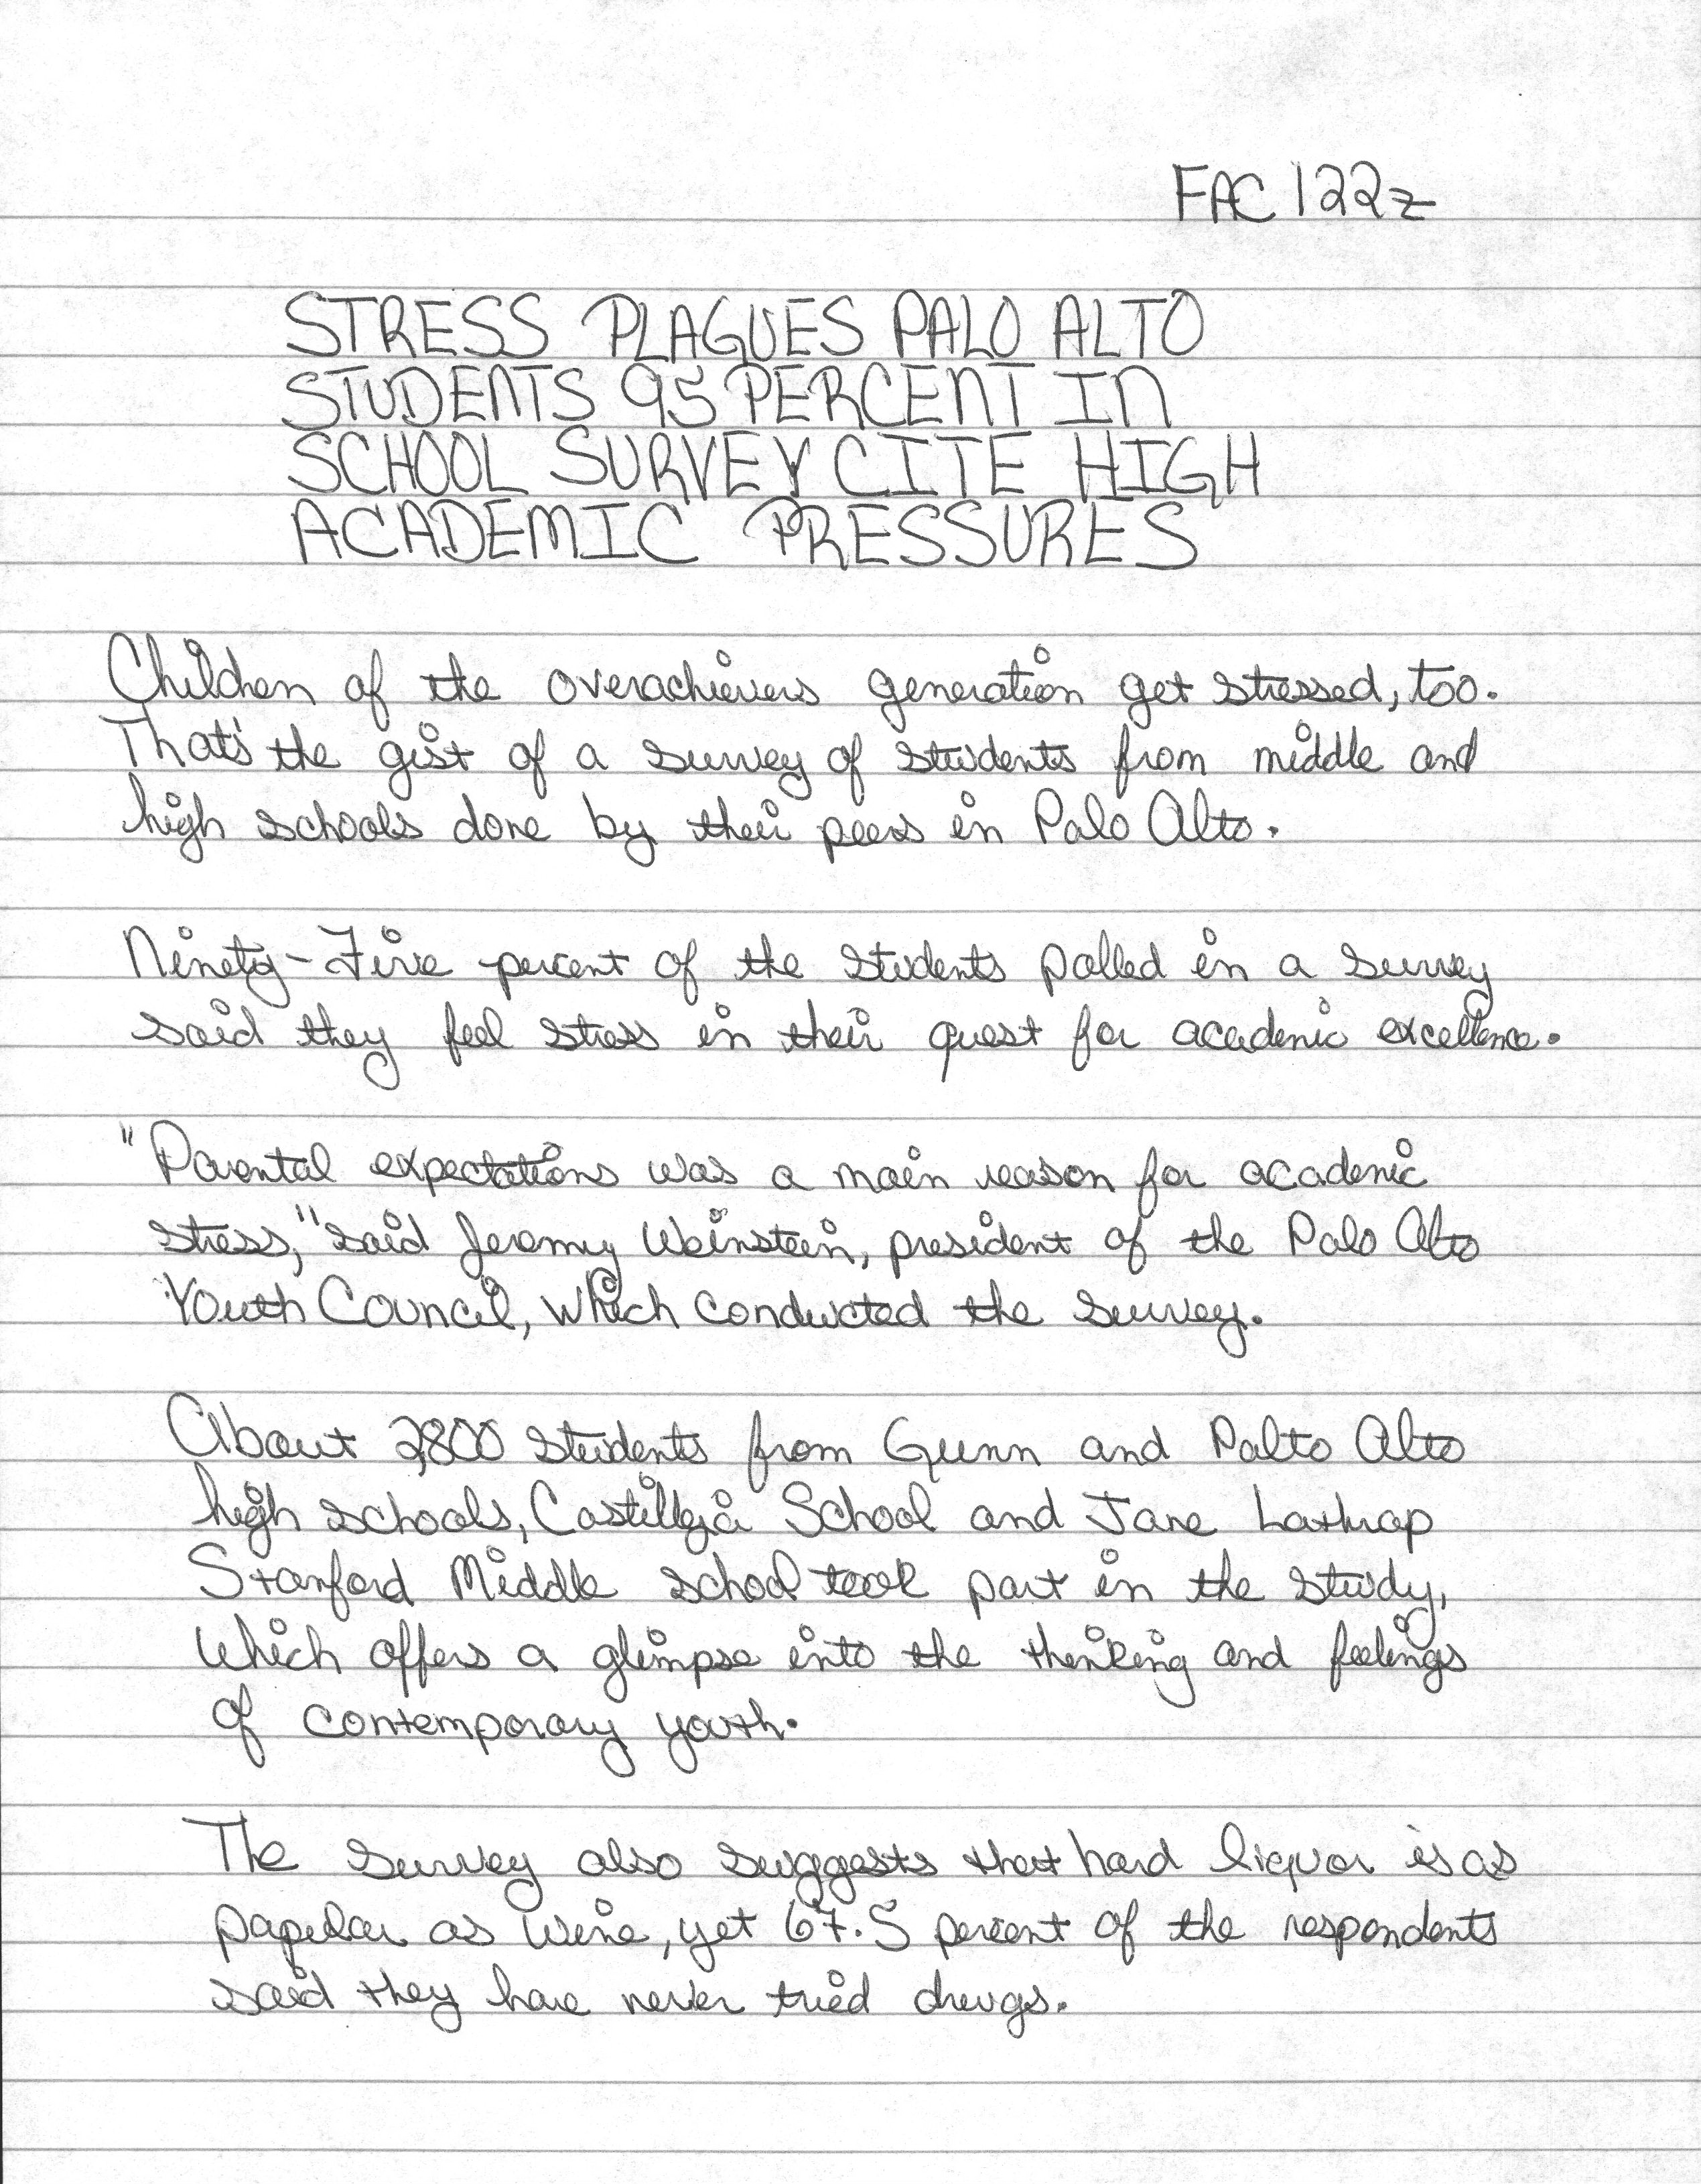 FAC 122z
STRESS PLAGUES PALO ALTO
STUDENTS 95 PERCENT IN
SCHOOL SURVEY CITE HIGH
ACADEMIC PRESSURES
Children of the overachievers generation get stressed, too.
That's the gist of a survey of students from middle and
high schools done by their peers in Palo Alto.
Ninety-Five percent of the students polled in a survey
said they feel stress in their quest for academic excellence.
"Parental expectations was a main reason for academic
stress," said Jeremy Weinstein, president of the Palo Alto
Youth Council, which conducted the survey.
About 2,800 students from Gunn and Palto Alto
high schools, Castilleja School and Jane Lathrop
Stanford Middle school took part in the study,
which offers a glimpse into the thinking and feelings
of contemporary youth.
The survey also suggests that hard liquor is as
popular as wine, yet 67.5 percent of the respondents
said they have never tried drugs.